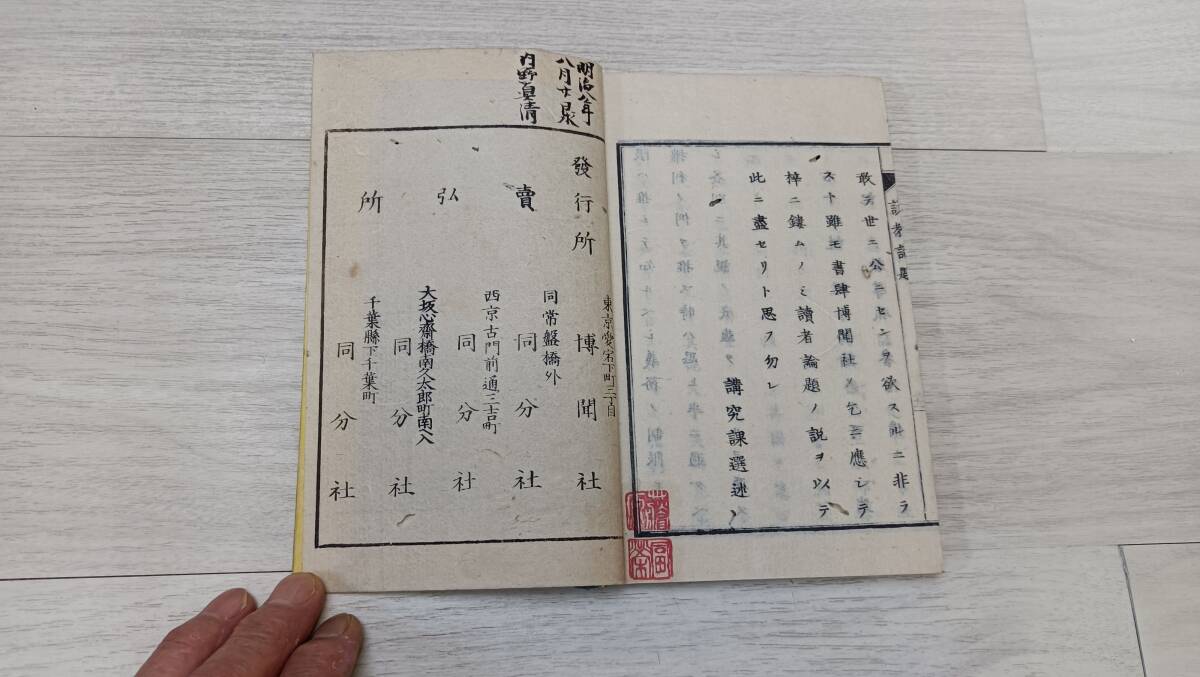 敢テ世ニ公ニセンヿヲ欲スルニ非ラ
スト雖モ書肆博聞社ノ乞ニ應シテ
梓ニ鏤ムノミ讀者論題ノ説ヲ以テ
此ニ盡セリト思フ勿レ
講究課選述
明治八年
八月廿日求
内野
清
發行所
東京愛宕下町三丁目
博聞社
賣弘所
同常盤橋外
同分社
西京古門前通三吉町
同分社
大坂心齋橋南久太郎町南入
同分社
千葉縣下千葉町
同分社